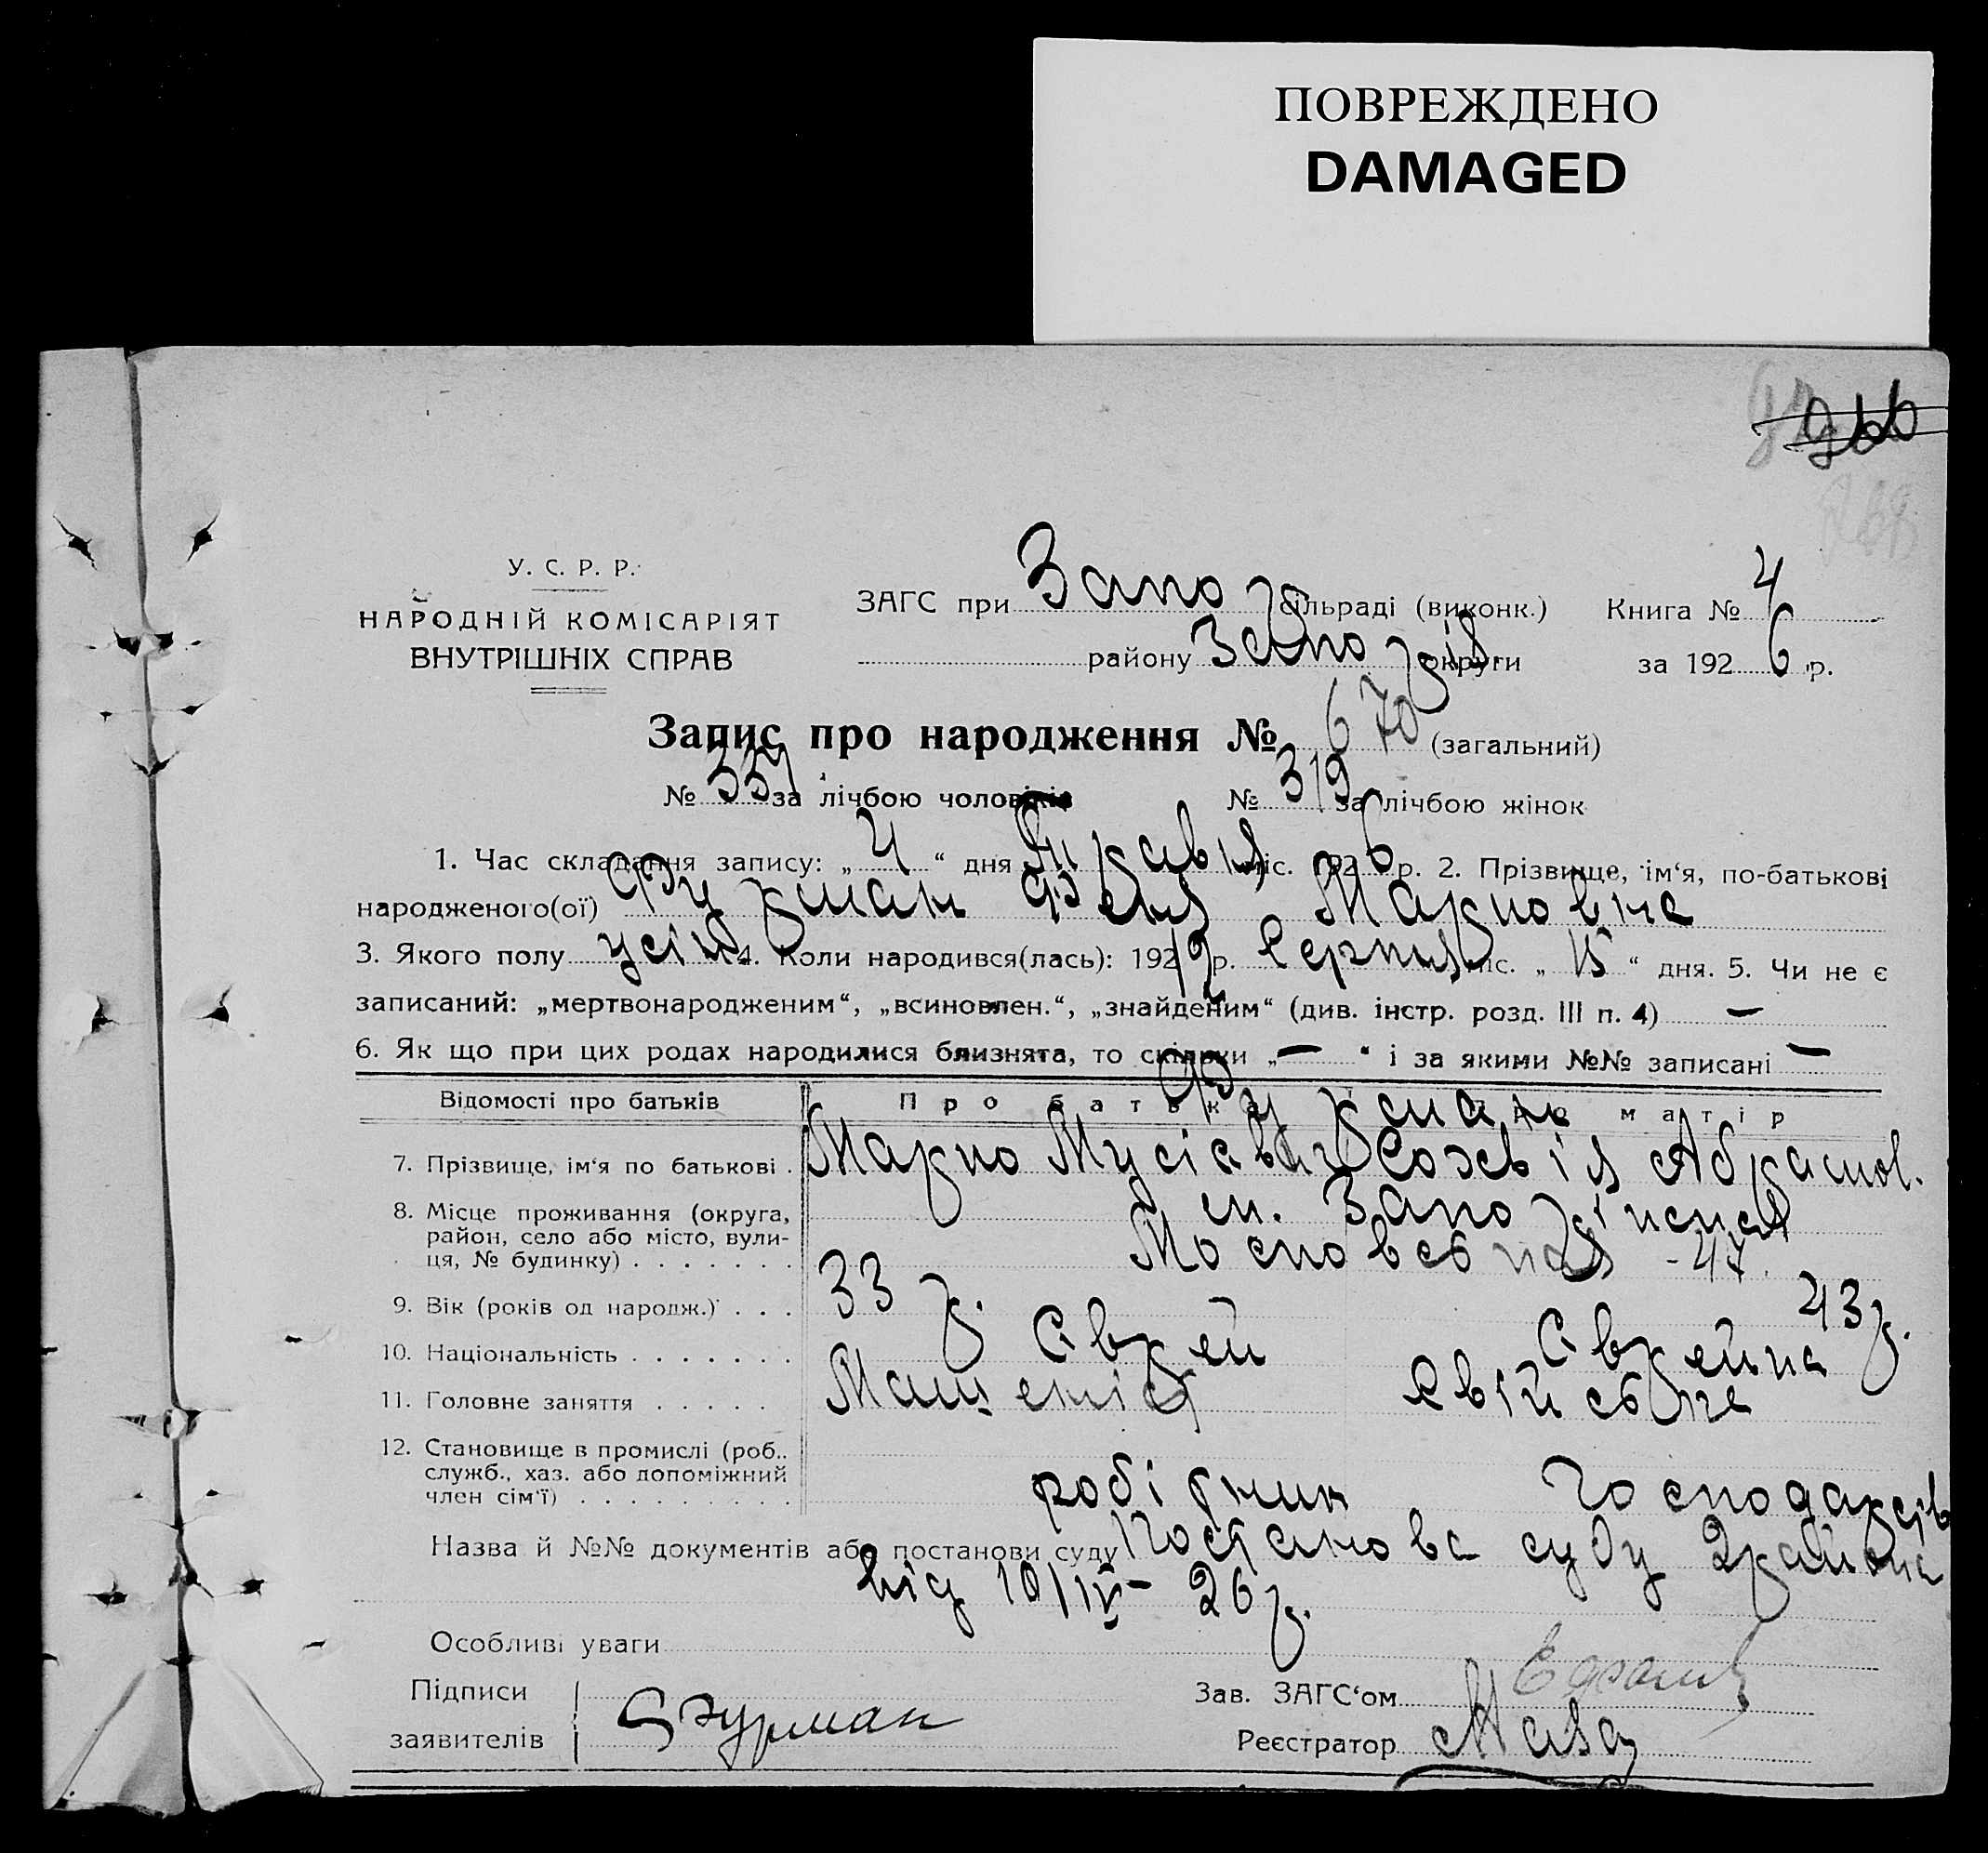 ПОВРЕЖДЕНО
DAMAGED
У. С. Р. Р.
НАРОДНІЙ КОМІСАРІЯТ
ВНУТРІШНІХ СПРАВ
ЗАГС при Запор сільраді (виконк.) Книга № 4
району Запоріз округи за 1926 р.
Запис про народження № 670 (загальний)
№ 351 за лічбою чоловіків № 319 за лічбою жінок
1. Час складання запису: „ 4 “ дня міс. 1926 р. 2. Прізвище, ім‘я, по-батькові
народженого(ої) Фурман Феня Марковна
3. Якого полу 4. Коли народився(лась): 192 р. Серпня міс. „ 15 “ дня. 5. Чи не є
записаний: „мертвонародженим“, „всиновлен.“, „знайденим“ (див. інстр. розд. III п. 4) —
6. Як що при цих родах народилися близнята, то скільки „ — “ і за якими №№ записані —
Відомості про батьків Про батька Про матір
Фурман
7. Прізвище, ім‘я по батькові . Марко Мусієвич Абрамов.
8. Місце проживання (округа, район, село або місто, вулиця, № будинку) . . . . . . . ст. Запоріжська
Московська - 47.
9. Вік (років од народж.) . . . 33 р. 43 р.
10. Національність . . . . . . . Єврей Єврейка
11. Головне заняття . . . . . Свійське
12. Становище в промислі (роб.. служб., хаз. або допоміжний член сім‘ї) . . . . . . . . . робітник
Назва й №№ документів або постанови суду Постанова суду 2 району
від 10/IV - 26 р.
Особливі уваги
Підписи
заявителів Фурман
Зав. ЗАГС‘ом
Реєстратор